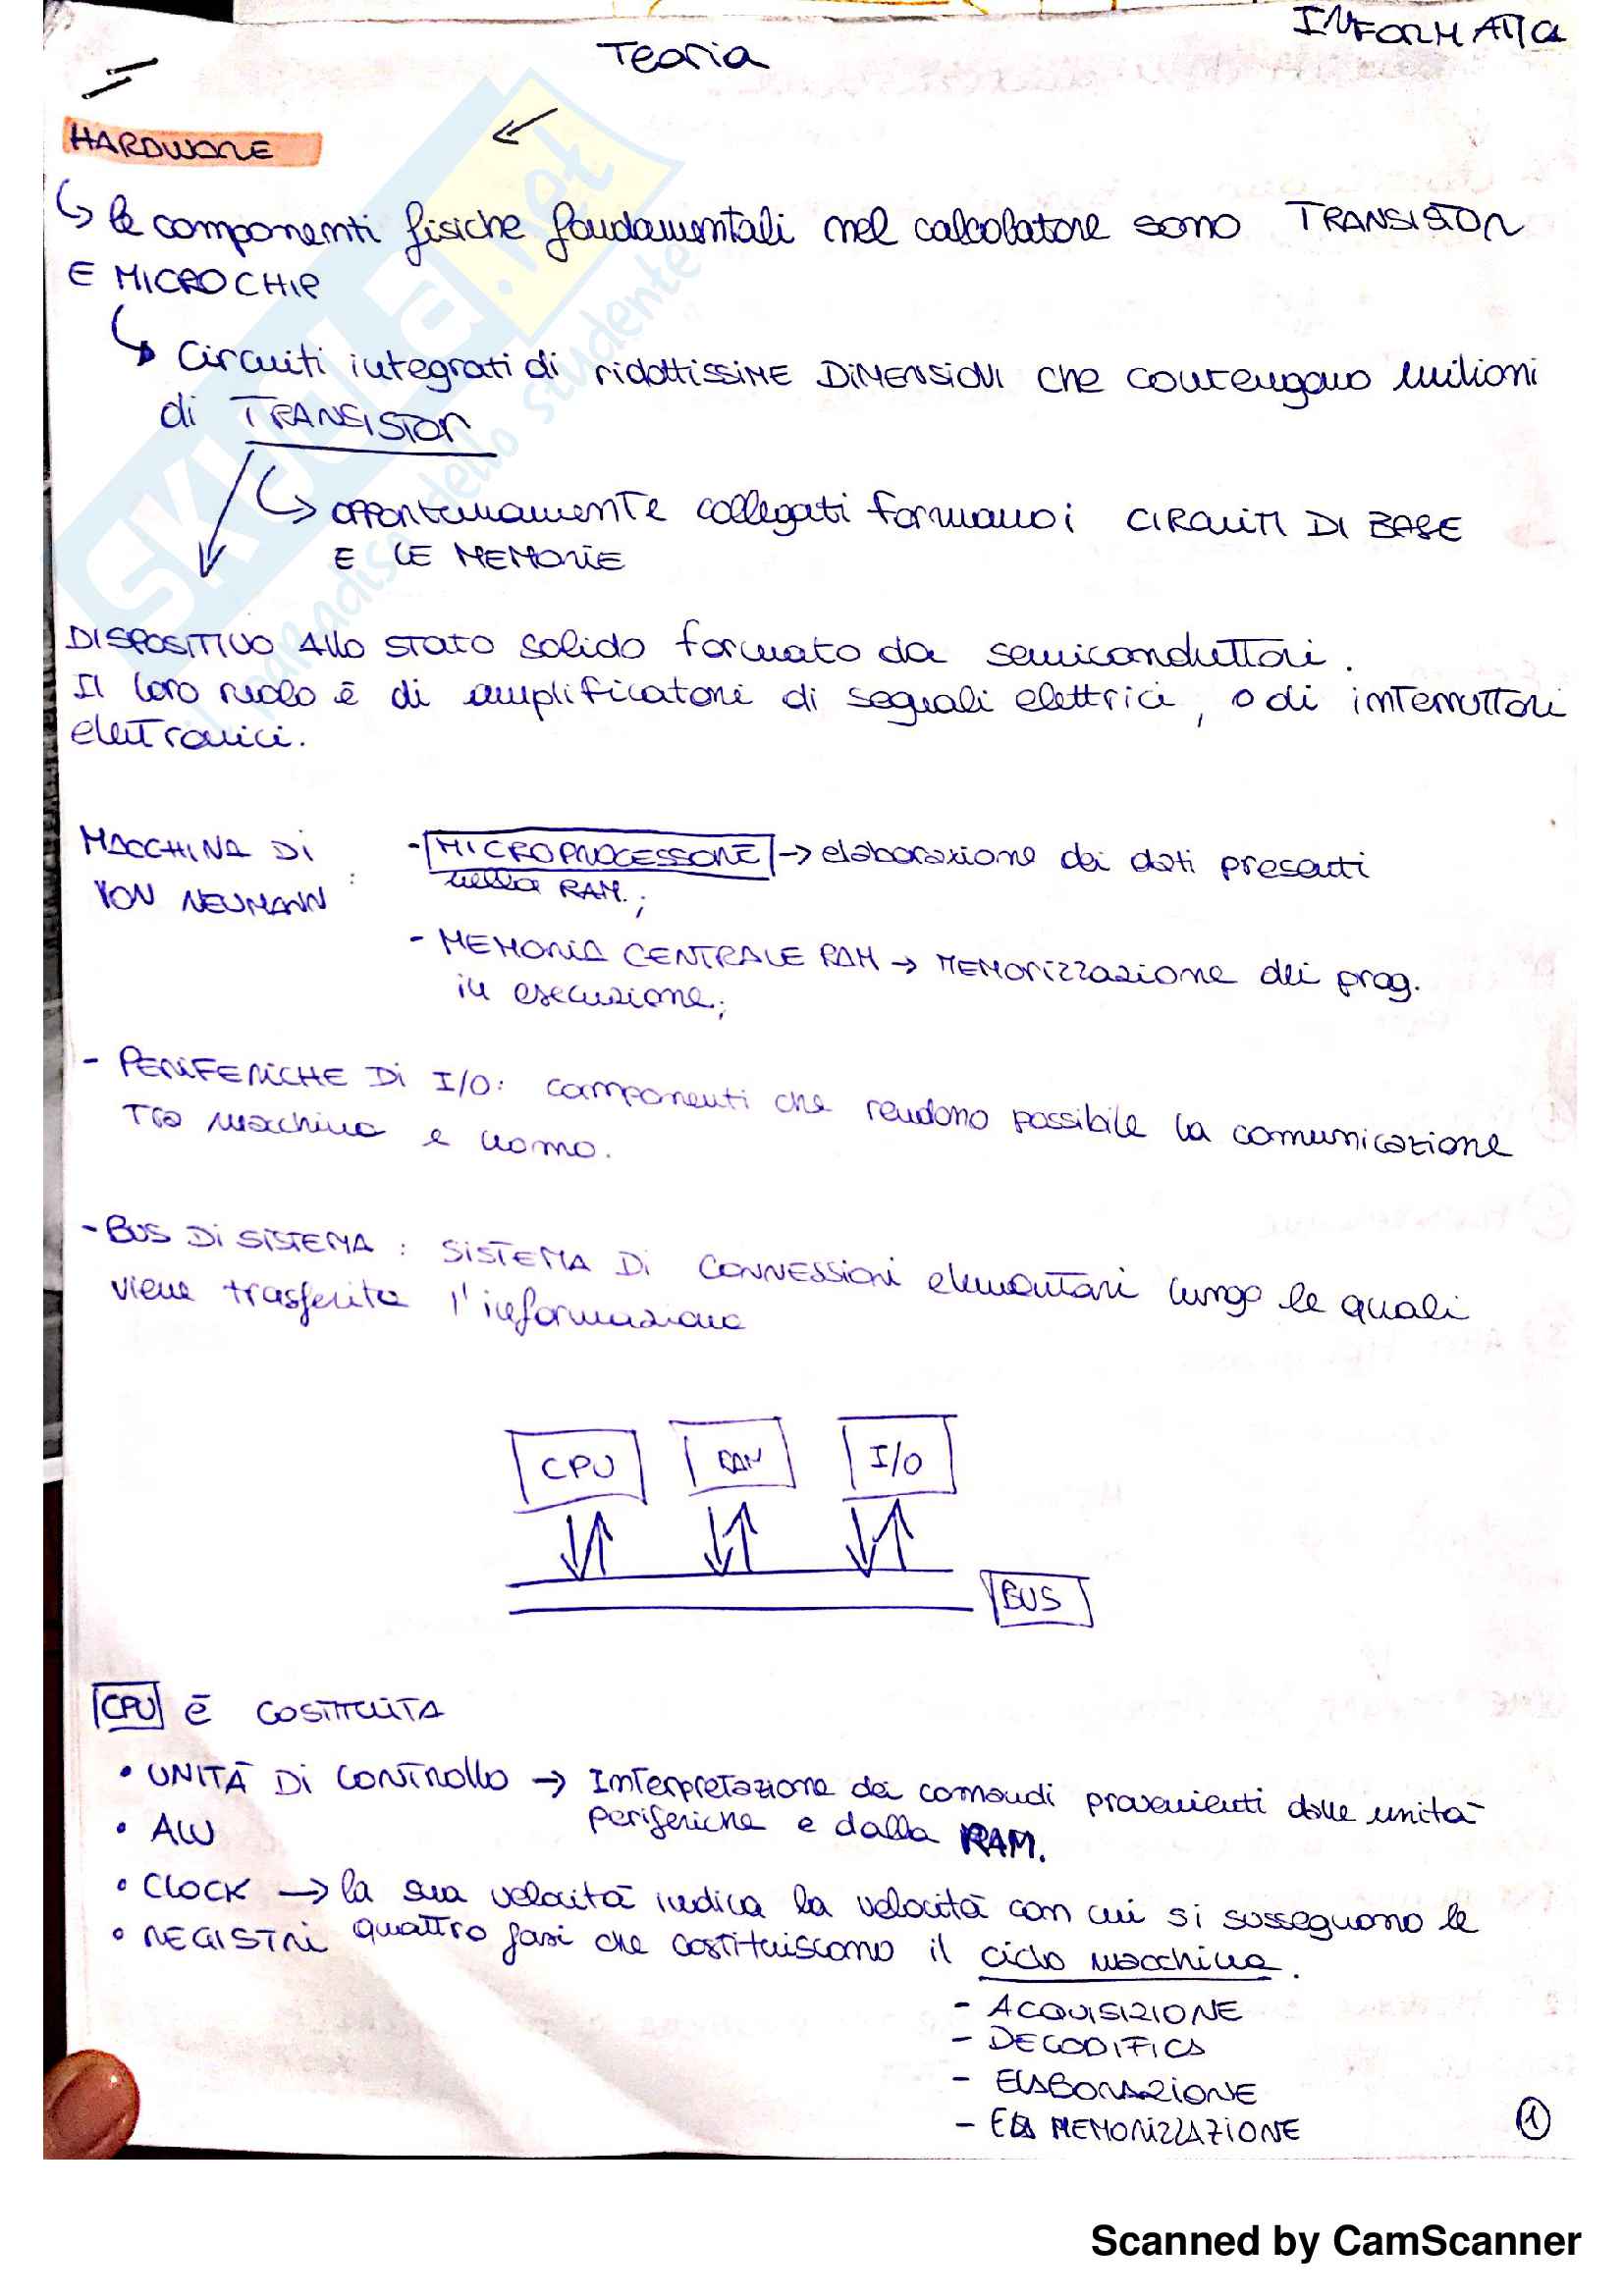 INFORMATICA
Teoria
HARDWARE
↳ le componenti fisiche fondamentali nel calcolatore sono TRANSISTOR
E MICROCHIP
↳ Circuiti integrati di ridottissime DIMENSIONI che contengono milioni
di TRANSISTOR
↳ opportunamente collegati formano i CIRCUITI DI BASE
E LE MEMORIE
DISPOSITIVO Allo stato solido formato da semiconduttori.
Il loro ruolo è di amplificatori di segnali elettrici, o di interruttori
elettronici.
MACCHINA DI
VON NEUMANN :
- MICROPROCESSORE → elaborazione dei dati presenti
nella RAM.;
- MEMORIA CENTRALE RAM → MEMORIZZAZIONE dei prog.
in esecuzione;
- PERIFERICHE DI I/O: componenti che rendono possibile la comunicazione
Tra macchina e uomo.
- BUS DI SISTEMA : SISTEMA DI CONNESSIONI elementari lungo le quali
viene trasferita l'informazione
CPU RAM I/O
BUS
CPU è COSTITUITA
• UNITÀ DI CONTROLLO → Interpretazione dei comandi provenienti dalle unità
periferiche e dalla RAM.
• ALU
• CLOCK → la sua velocità indica la velocità con cui si susseguono le
quattro fasi che costituiscono il ciclo macchina.
• REGISTRI
- ACQUISIZIONE
- DECODIFICA
- ELABORAZIONE
- MEMORIZZAZIONE
1
SKUOLA.net
il paradiso dello studente
Scanned by CamScanner